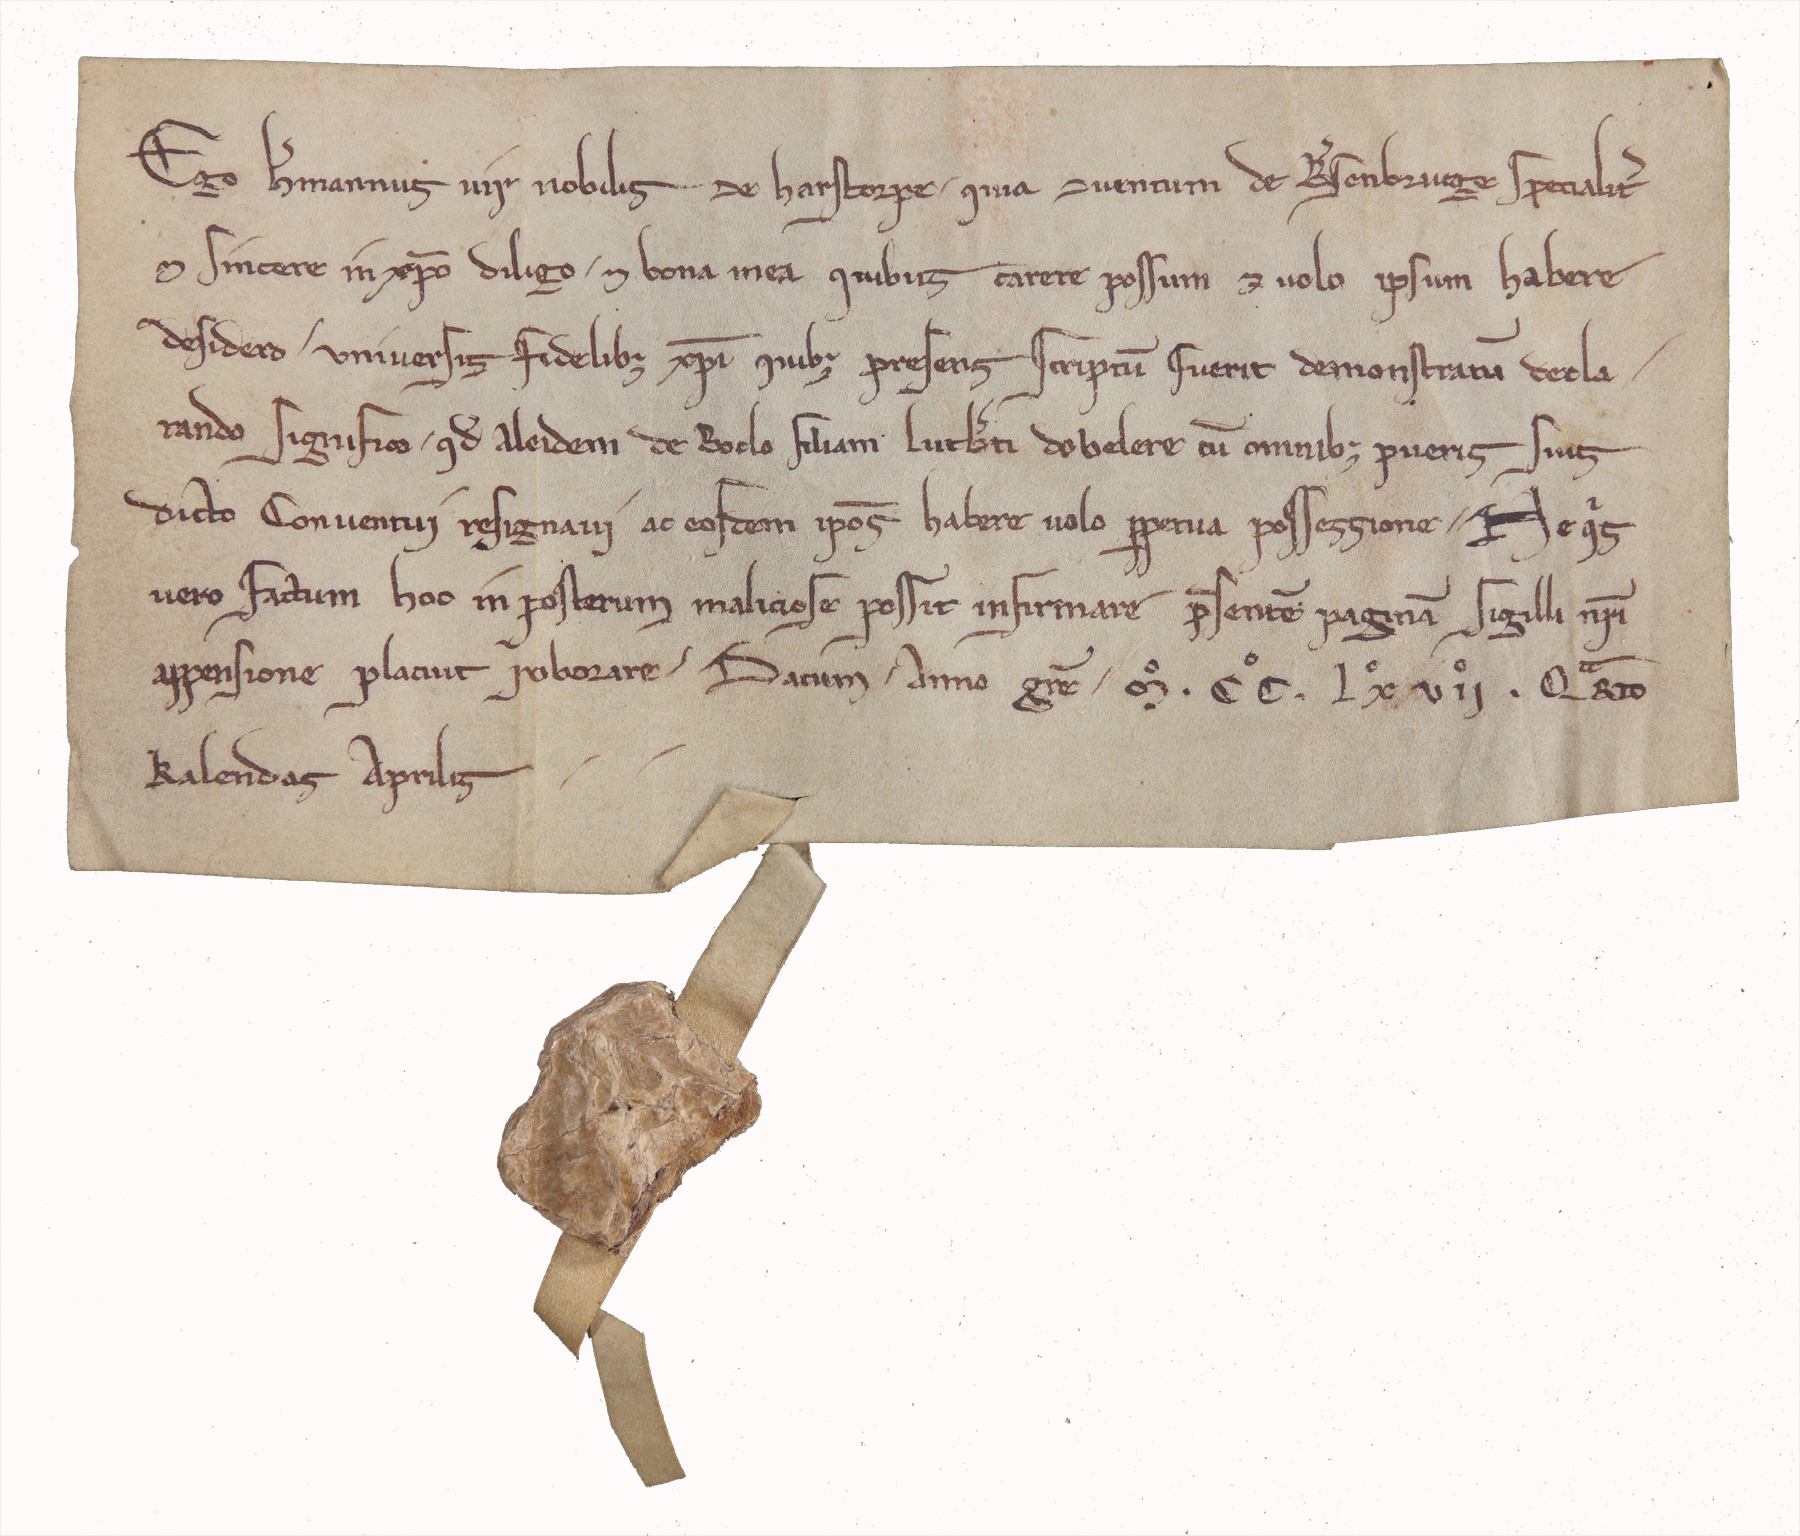 Ego h̾mannus vir nobilis de harstorpe / quia ꝯventum de B̾senbrugge specialit̾
⁊ sincere in xp̅o diligo / ⁊ bona mea quibus carere possum ⁊ volo ipsum habere
desidero / vniversis fidelibꝫ xp̅i quibꝫ presens scriptu̅ fuerit demonstratu̅ decla /
rando significo / qd̾ Aleidem de Boclo filiam lutb̾ti do velere cu̅ omnibꝫ pueris suis
dicto Conventui resignavi ac eosdem ip̅os habere volo ꝑpetua possessione / Ne qis
vero factum hoc in posterum maliciose possit infirmare p̅sente̅ pagina̅ sigilli nr̅i
appensione placuit roborare / Datum / Anno gr̅e / M̊ . C̊C . Lx̊vi̊i . Qarto
Kalendas Aprilis / /